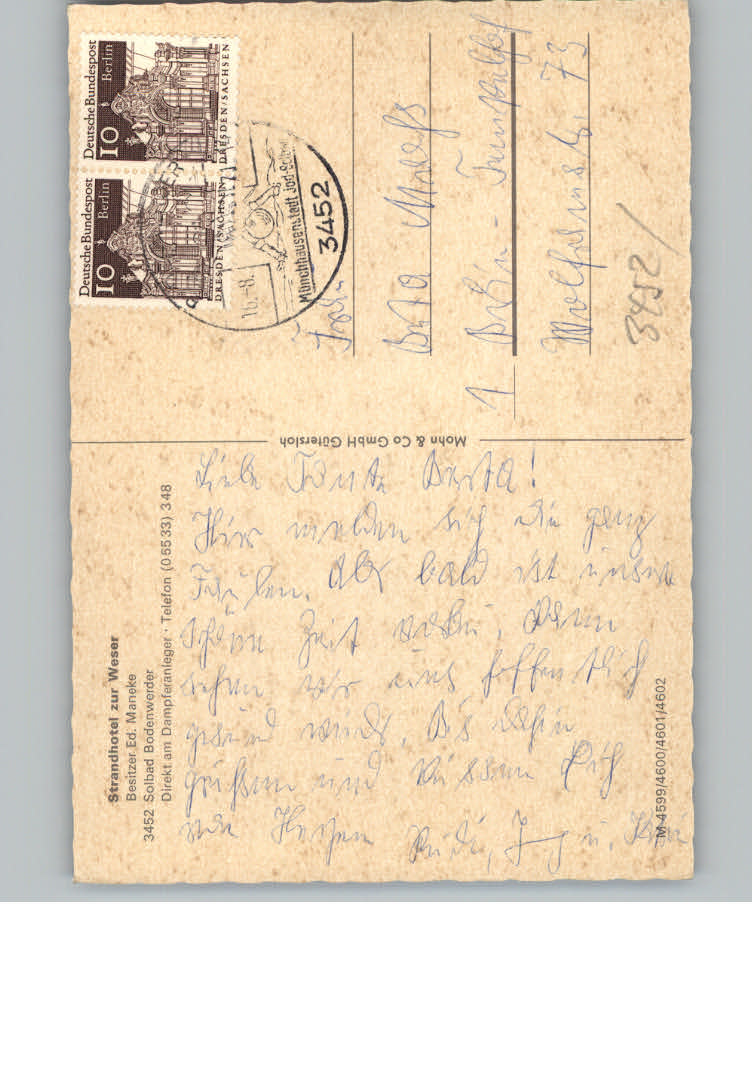 Strandhotel zur Weser
Besitzer Ed. Maneke
3452 Solbad Bodenwerder
Direkt am Dampferanleger · Telefon (05533) 348
Liebe Tante Berta!
Hier melden sich die ganz
Faulen. Aber bald ist unsere
schöne Zeit vorbei, dann
sehen wir uns hoffentlich
gesund wieder. Bis dahin
grüßen und küssen Dich
von Herzen
u.
TM 4599/4600/4601/4602
Mohn & Co GmbH Gütersloh
Deutsche Bundespost
Berlin
10
DRESDEN/SACHSEN
Deutsche Bundespost
Berlin
10
DRESDEN/SACHSEN
16.-8.
Münchhausenstadt Jod-Solbad
3452
Frau
Berta
1 Berlin - Tempelhof
73
3452/